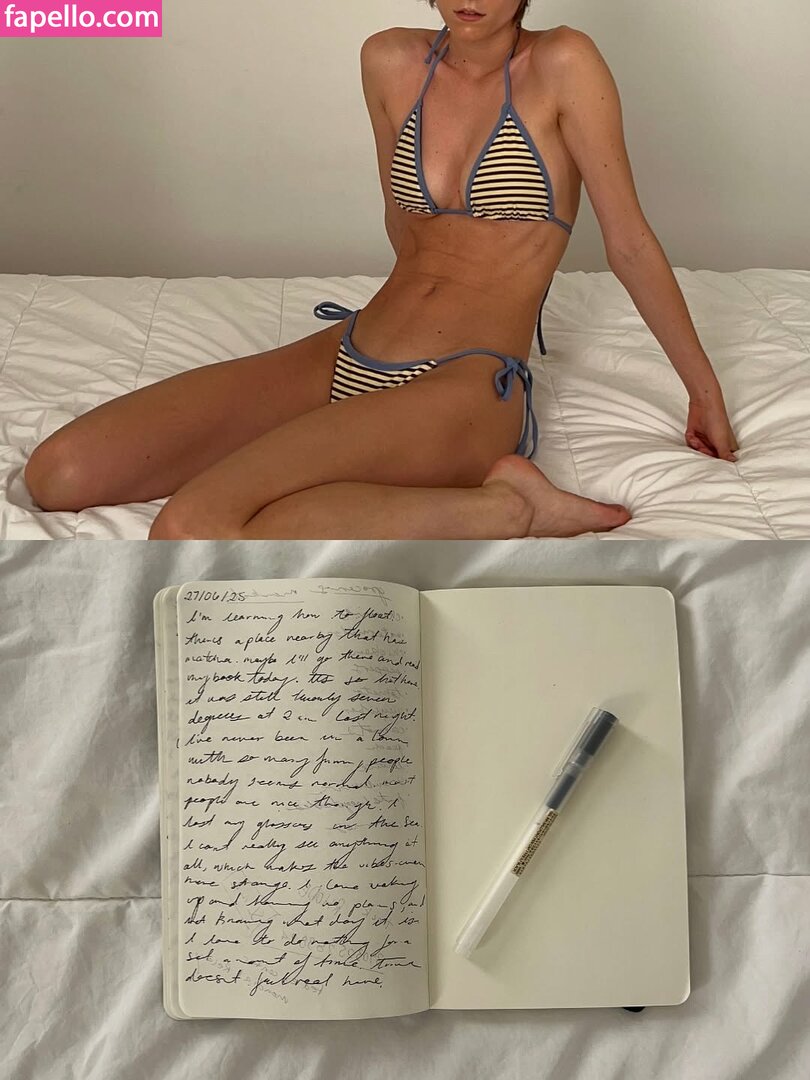 fapello.com
27/06/25
I'm learning how to float.
there's a place nearby that has
matcha. maybe I'll go there and read
my book today. It's so hot here
it was still twenty seven
degrees at 2am last night.
I've never been in a town
with so many funny people
nobody seems normal. most
people are nice though. I
lost my glasses in the sea.
I can't really see anything at
all, which makes the vibes even
more strange. I love waking
up and having no plans, and
not knowing what day it is.
I love to do nothing for a
set amount of time. time
doesn't feel real here.